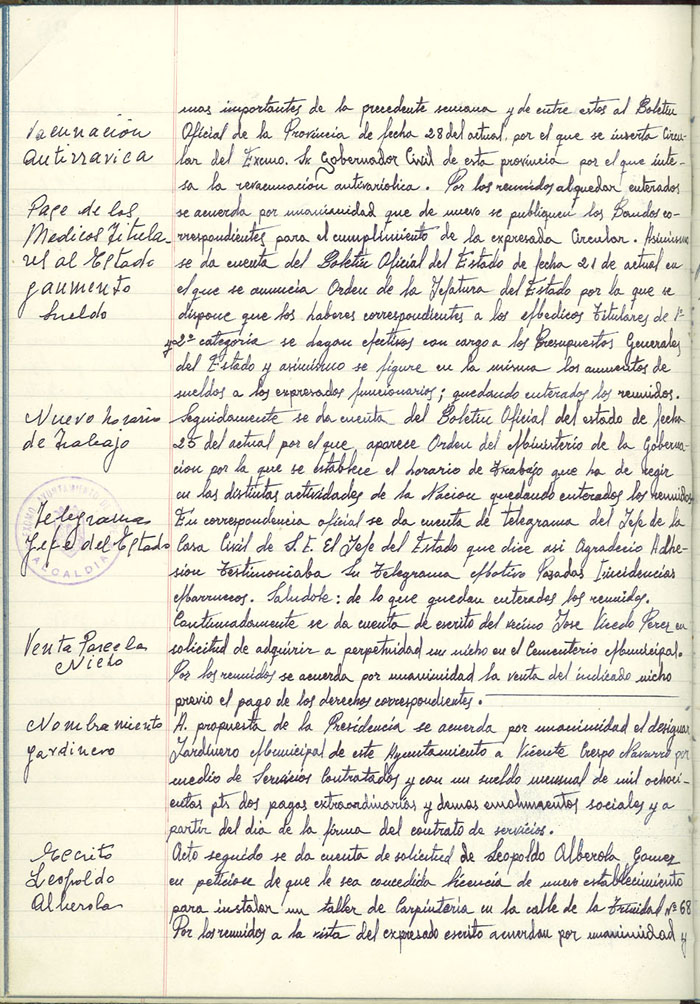 mas importantes de la precedente semana y de entre estos al Boletin
Vacunación
antirravica
Oficial de la Provincia de fecha 28 del actual, por el que se inserta Circu-
lar del Excmo. Sr Gobernador Civil de esta provincia por el que inte-
sa la revacunación antivariolica. Por los reunidos al quedar enterados
Pago de los
Medicos Titula-
res al Estado
y aumento
sueldo
se acuerda por unanimidad que de nuevo se publiquen los Bandos co-
rrespondientes para el cumplimiento de la expresada Circular. Asimismo
se da cuenta del Boletin Oficial del Estado de fecha 21 de actual en
el que se anuncia Orden de la Jefatura del Estado por la que se
dispone que los haberes correspondientes a los Medicos Titulares de 1ª
y 2ª categoria se hagan efectivos con cargo a los Presupuestos Generales
del Estado y asimismo se figure en la misma los aumentos de
sueldos a los expresados funcionarios; quedando enterados los reunidos.
Nuevo horario
de Trabajo
Seguidamente se da cuenta del Boletin Oficial del estado de fecha
25 del actual por el que aparece Orden del Ministerio de la Goberna-
cion por la que se establece el horario de Trabajo que ha de regir
en las distintas actividades de la Nacion quedando enterados los reunidos
Telegrama
Jefe del Estado
ALCALDIA
En correspondencia oficial se da cuenta de telegrama del Jefe de la
Casa Civil de S. E. El Jefe del Estado que dice asi Agradecio Adhe-
sion Testimoniaba Su Telegrama Motivo Pasadas Incidencias
Marruecos. Saludole: de lo que quedan enterados los reunidos.
Venta Parcela
Nicho
Continuadamente se da cuenta de escrito del vecino Jose Vicedo Perez en
solicitud de adquirir a perpetuidad un nicho en el Cementerio Municipal.
Por los reunidos se acuerda por unanimidad la venta del indicado nicho
previo el pago de los derechos correspondientes.
Nombramiento
jardinero
A. propuesta de la Presidencia se acuerda por unanimidad el designar
Jardinero Municipal de este Ayuntamiento a Vicente Crespo Navarro por
medio de Servicios Contratados y con un sueldo mensual de mil ochoci-
entas pts dos pagas extraordinarias y demas emolumentos sociales y a
partir del dia de la firma del contrato de servicios.
Escrito
Leopoldo
Alberola
Acto seguido se da cuenta de solicitud de Leopoldo Alberola Gomez
en peticion de que le sea concedida licencia de nuevo establecimiento
para instalar un taller de Carpinteria en la calle de la Trinidad Nº 68
Por los reunidos a la vista del expresado escrito acuerdan por unanimidad y